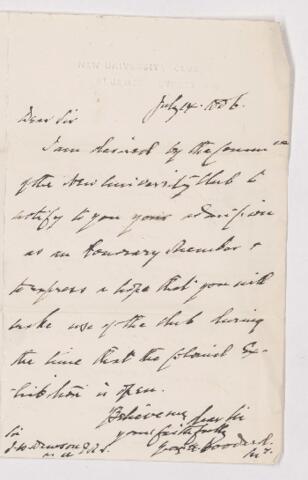 NEW UNIVERSITY CLUB
July 14. 1886.
Dear Sir
I am desired by the Committee
of the New University Club to
notify to you your admission
as an honorary Member &
to express a hope that you will
make use of the Club during
the time that the Colonial Ex-
hibition is open.
Believe me dear Sir
yours faithfully
Sir
J. W. Dawson